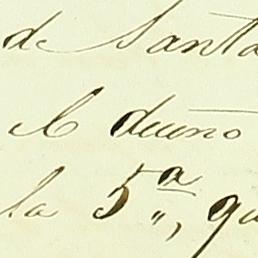 de Santa
el dueño
la 5.ª, qu